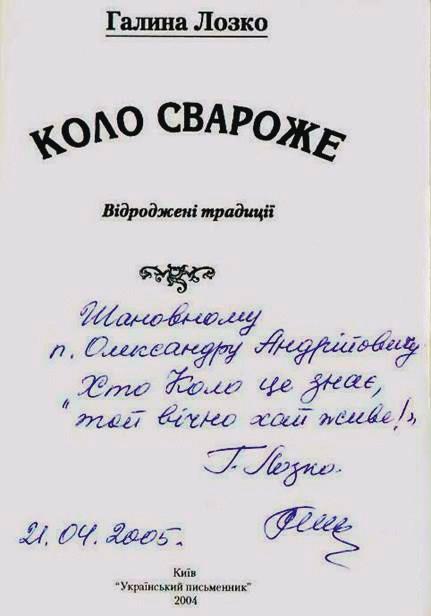 Галина Лозко
КОЛО СВАРОЖЕ
Відроджені традиції
Шановному
п. Олександру Андрійовичу
Хто Коло це знає,
"той вічно хай живе!"
Г. Лозко.
21.04.2005.
Київ
"Український письменник"
2004